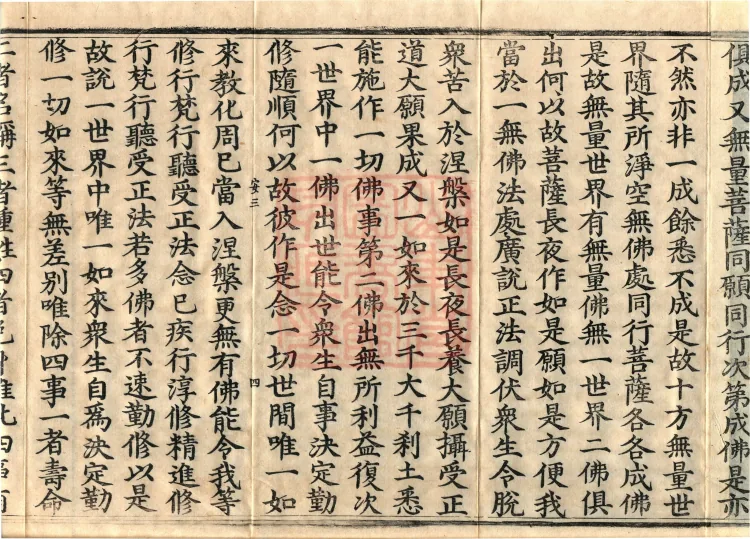 俱成又無量菩薩同願同行次第成佛是亦
不然亦非一成餘悉不成是故十方無量世
界隨其所淨空無佛處同行菩薩各各成佛
是故無量世界有無量佛無一世界二佛俱
出何以故菩薩長夜作如是願如是方便我
當於一無佛法處廣說正法調伏衆生令脫
衆苦入於涅槃如是長夜長養大願攝受正
道大願果成又一如來於三千大千刹土悉
能施作一切佛事第二佛出無所利益復次
一世界中一佛出世能令衆生自事決定勤
修隨順何以故彼作是念一切世間唯一如
安三
四
來教化周已當入涅槃更無有佛能令我等
修行梵行聽受正法念已疾行淳修精進修
行梵行聽受正法若多佛者不速勤修以是
故說一世界中唯一如來衆生自爲決定勤
修一切如來等無差別唯除四事一者壽命
二者名稱三者種姓四者色身唯此四事有